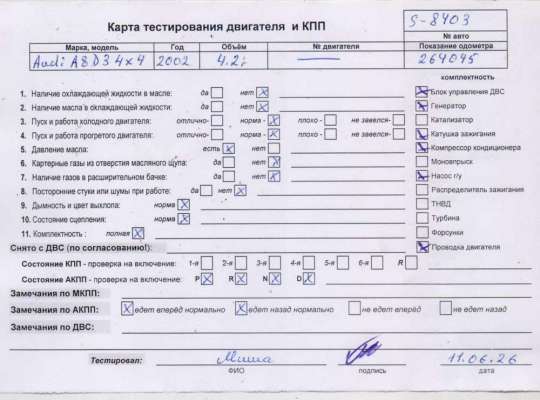 Карта тестирования двигателя и КПП
S-8403
№ авто
Марка, модель Год Объём № двигателя Показание одометра
Audi A8D3 4x4 2002 4.2i — 264045
комплектность
1. Наличие охлаждающей жидкости в масле: да нет X
Блок управления ДВС
2. Наличие масла в охлаждающей жидкости: да нет X
Генератор
3. Пуск и работа холодного двигателя: отлично- норма - X плохо - не завелся-
Катализатор
4. Пуск и работа прогретого двигателя: отлично- норма - X плохо - не завелся-
Катушка зажигания
5. Давление масла: есть X нет
Компрессор кондиционера
6. Картерные газы из отверстия масляного щупа: да нет X
Моновпрыск
7. Наличие газов в расширительном бачке: да нет X
Насос г/у
8. Посторонние стуки или шумы при работе: да нет X
Распределитель зажигания
9. Дымность и цвет выхлопа: норма X
ТНВД
10. Состояние сцепления: норма X
Турбина
11. Комплектность : полная X
Форсунки
Снято с ДВС (по согласованию!):
Проводка двигателя
Состояние КПП - проверка на включение: 1-я 2-я 3-я 4-я 5-я 6-я R
Состояние АКПП - проверка на включение: P X R X N X D X
Замечания по МКПП:
Замечания по АКПП: X едет вперёд нормально X едет назад нормально не едет вперёд не едет назад
Замечания по ДВС:
Тестировал: Миша 11.06.26
ФИО подпись дата